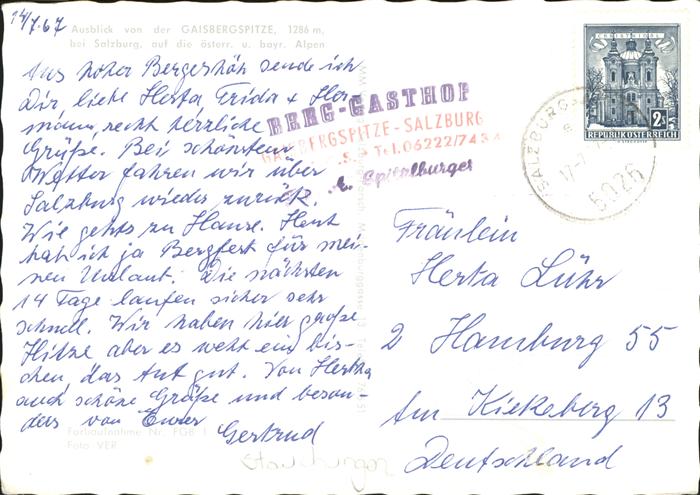 14/7.67
Ausblick von der GAISBERGSPITZE, 1286 m,
bei Salzburg, auf die österr. u. bayr. Alpen
Aus hoher Bergeshöh sende ich
Dir, liebe Herta, Frida + Her-
mann, recht herzliche
Grüße. Bei schönstem
Wetter fahren wir über
Salzburg wieder zurück.
Wie gehts zu Hause. Heut
hab ich ja Bergfest für mei-
nen Urlaub. Die nächsten
14 Tage laufen sicher sehr
schnell. Wir haben hier große
Hitze aber es weht ein bis-
chen, das tut gut. Von Hertha
auch schöne Grüße und beson-
ders von Eurer
Gertrud
Farbaufnahme Nr. FGB
Foto VER
BERG-GASTHOF
GAISBERGSPITZE-SALZBURG
Tel. 06222/743
Spitalburger
CHRISTKINDL
2S
REPUBLIK ÖSTERREICH
SALZBURG
17-7
5026
Fräulein
Herta Lühr
2 Hamburg 55
Am Kiekeberg 13
Deutschland